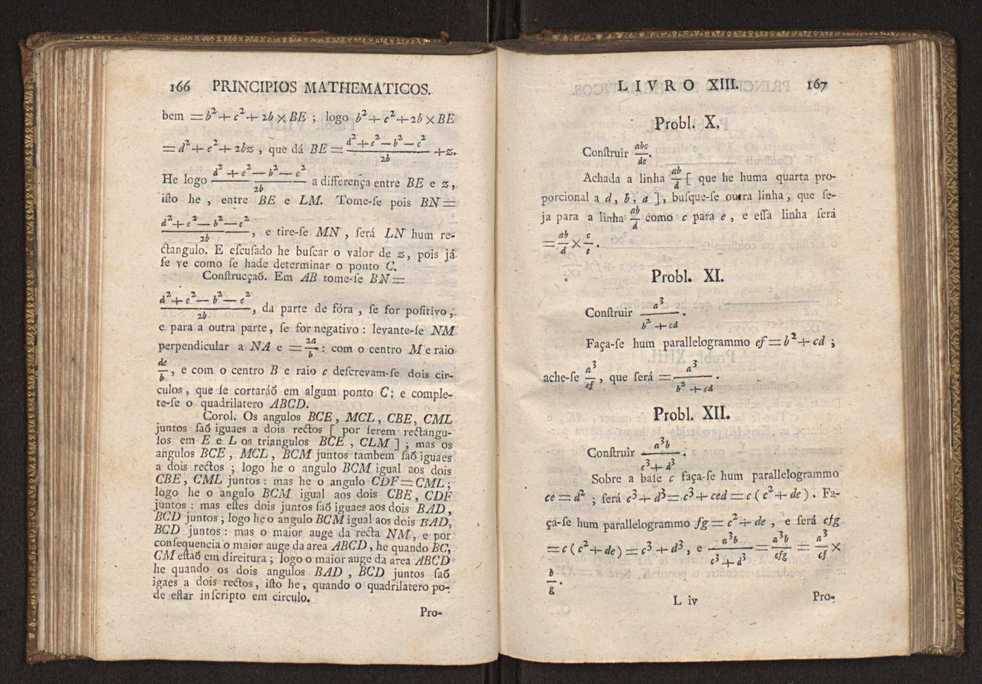 166 PRINCIPIOS MATHEMATICOS.
bem = b² + c² + 2b × BE ; logo b² + c² + 2b × BE
= d² + e² + 2bz , que dá BE = (d² + e² — b² — c²)/2b + z.
He logo (d² + e² — b² — c²)/2b a differença entre BE e z ,
iſto he , entre BE e LM. Tome-ſe pois BN =
(d² + e² — b² — c²)/2b , e tire-ſe MN , ſerá LN hum re-
ctangulo. E eſcuſado he buſcar o valor de z, pois já
ſe ve como ſe hade determinar o ponto C.
Conſtrucçaõ. Em AB tome-ſe BN =
(d² + e² — b² — c²)/2b , da parte de fóra , ſe for poſitivo ,
e para a outra parte , ſe for negativo : levante-ſe NM
perpendicular a NA e = 2a/b : com o centro M e raio
de/b , e com o centro B e raio c deſcrevam-ſe dois cir-
culos , que ſe cortaráõ em algum ponto C ; e comple-
te-ſe o quadrilatero ABCD.
Corol. Os angulos BCE , MCL , CBE , CML
juntos ſaõ iguaes a dois rectos [ por ſerem rectangu-
los em E e L os triangulos BCE , CLM ] ; mas os
angulos BCE , MCL , BCM juntos tambem ſaõ iguaes
a dois rectos ; logo he o angulo BCM igual aos dois
CBE , CML juntos : mas he o angulo CDF = CML ;
logo he o angulo BCM igual aos dois CBE , CDF
juntos : mas eſtes dois juntos ſaõ iguaes aos dois BAD ,
BCD juntos ; logo he o angulo BCM igual aos dois BAD,
BCD juntos : mas o maior auge da recta NM , e por
conſequencia o maior auge da area ABCD , he quando BC,
CM eſtaõ em direitura ; logo o maior auge da area ABCD
he quando os dois angulos BAD , BCD juntos ſaõ
igaes a dois rectos , iſto he , quando o quadrilatero po-
de eſtar inſcripto em circulo.
Pro-
LIVRO XIII. 167
Probl. X.
Conſtruir abc/de.
Achada a linha ab/d [ que he huma quarta pro-
porcional a d , b , a ] , buſque-ſe outra linha , que ſe-
ja para a linha ab/d como c para e , e eſſa linha ſerá
= ab/d × c/e .
Probl. XI.
Conſtruir a³/(b² + cd) .
Faça-ſe hum parallelogrammo ef = b² + cd ;
ache-ſe a³/ef , que ſerá = a³/(b² + cd) .
Probl. XII.
Conſtruir a³b/(c³ + d³) .
Sobre a baſe c faça-ſe hum parallelogrammo
ce = d² ; ſerá c³ + d³ = c³ + ced = c ( c² + de ) . Fa-
ça-ſe hum parallelogrammo fg = c² + de , e ſerá cfg
= c ( c² + de ) = c³ + d³ , e a³b/(c³ + d³) = a³b/cfg = a³/cf ×
b/g .
L iv Pro-